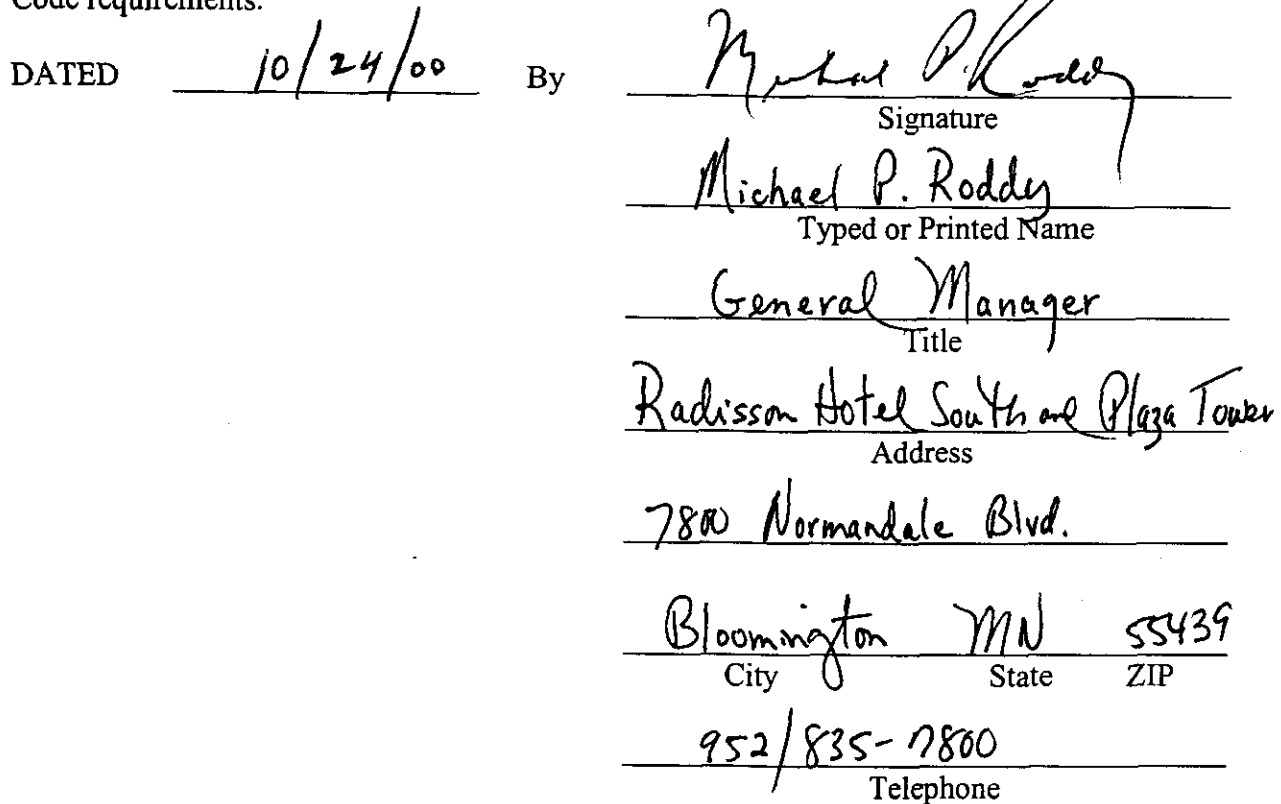 Code requirements.
DATED 10/24/00 By Michael P. Roddy
Signature
Michael P. Roddy
Typed or Printed Name
General Manager
Title
Radisson Hotel South and Plaza Tower
Address
7800 Normandale Blvd.
Bloomington MN 55439
City State ZIP
952/835-7800
Telephone